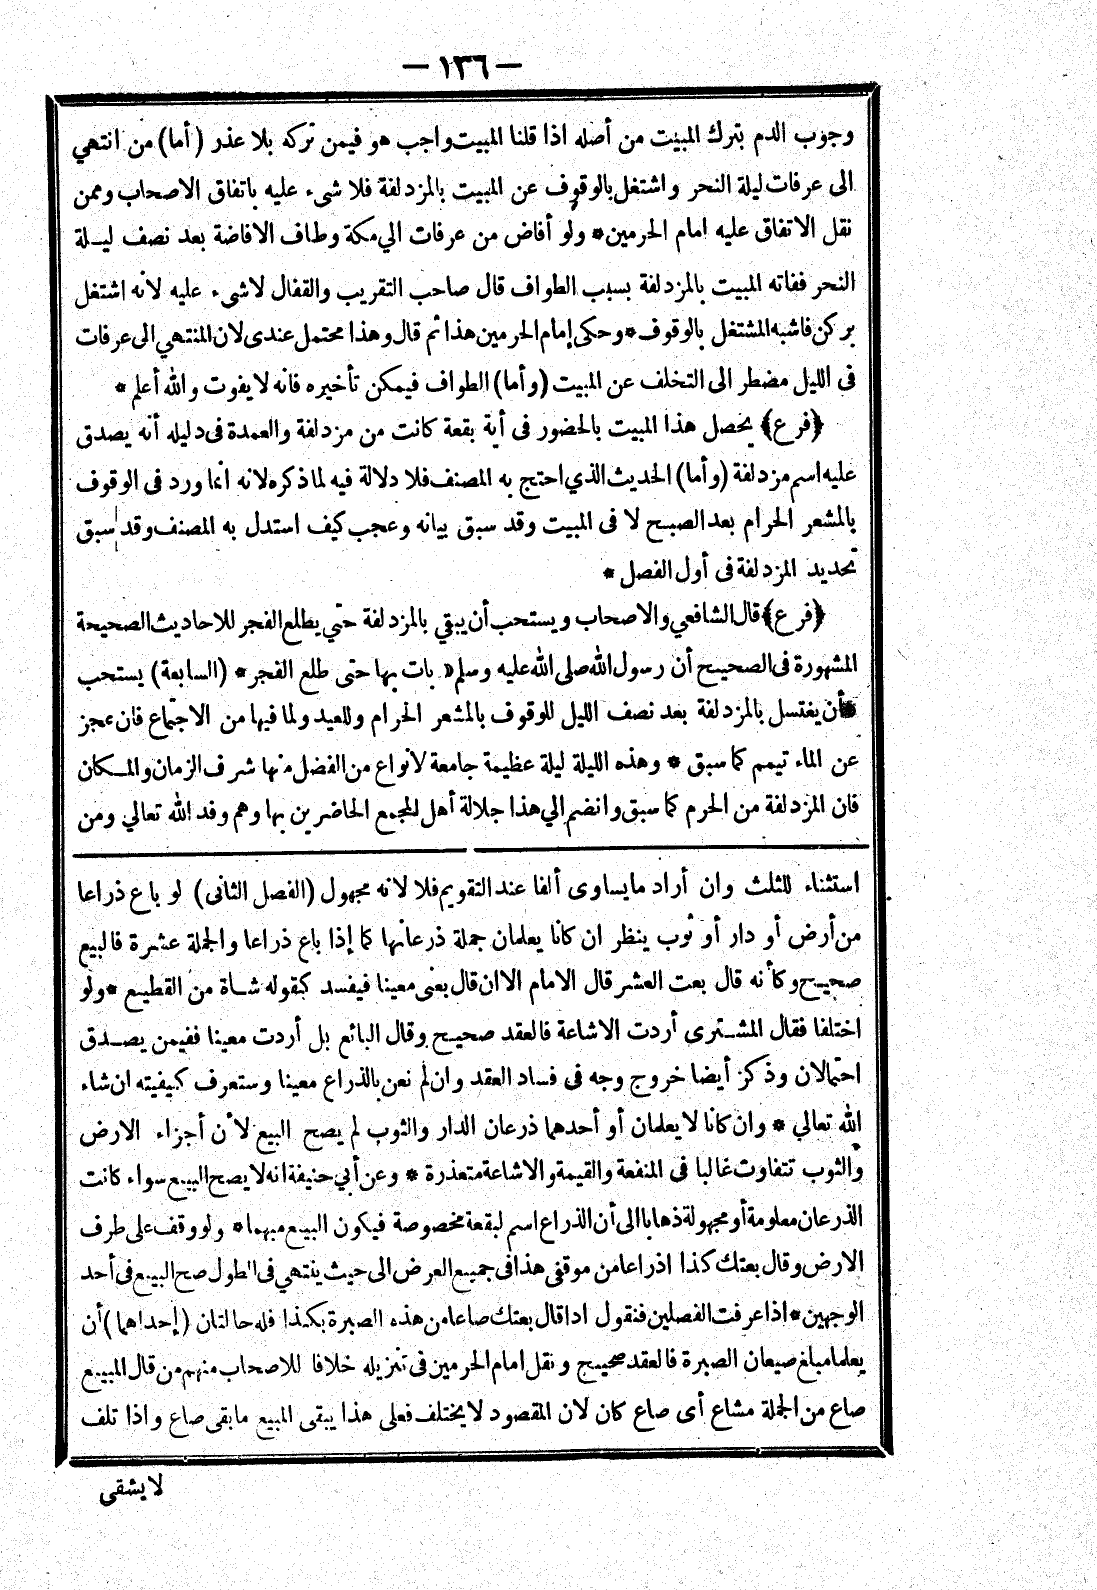 — ١٣٦ —
وجوب الدم بترك المبيت من أصله اذا قلنا المبيت واجب هو فيمن تركه بلا عذر (أما) من انتهي
الى عرفات ليلة النحر واشتغل بالوقوف عن المبيت بالمزدلفة فلا شىء عليه باتفاق الاصحاب وممن
نقل الاتفاق عليه امام الحرمين* ولو أفاض من عرفات الي مكة وطاف الافاضة بعد نصف ليلة
النحر ففاته المبيت بالمزدلفة بسبب الطواف قال صاحب التقريب والقفال لاشىء عليه لانه اشتغل
بركن فاشبه المشتغل بالوقوف* وحكى إمام الحرمين هذا ثم قال وهذا محتمل عندى لان المنتهي الى عرفات
فى الليل مضطر الى التخلف عن المبيت (وأما) الطواف فيمكن تأخيره فانه لا يفوت والله أعلم *
﴿فرع﴾ يحصل هذا المبيت بالحضور فى أية بقعة كانت من مزدلفة والعمدة فى دليله أنه يصدق
عليه اسم مزدلفة (وأما) الحديث الذي احتج به المصنف فلا دلالة فيه لما ذكره لانه انما ورد فى الوقوف
بالمشعر الحرام بعد الصبح لا فى المبيت وقد سبق بيانه وعجب كيف استدل به المصنف وقد سبق
تحديد المزدلفة فى أول الفصل *
﴿فرع﴾ قال الشافعي والاصحاب ويستحب أن يبقي بالمزدلفة حتي يطلع الفجر للاحاديث الصحيحة
المشهورة فى الصحيح أن رسول الله صلى الله عليه وسلم « بات بها حتى طلع الفجر* (السابعة) يستحب
أن يغتسل بالمزدلفة بعد نصف الليل للوقوف بالمشعر الحرام وللعيد ولما فيها من الاجتماع فان عجز
عن الماء تيمم كما سبق * وهذه الليلة ليلة عظيمة جامعة لانواع من الفضل منها شرف الزمان والمكان
فان المزدلفة من الحرم كما سبق وانضم الي هذا جلالة أهل المجمع الحاضرين بها وهم وفد الله تعالي ومن
استثناء للثلث وان أراد مايساوى ألفا عند التقويم فلا لانه مجهول (الفصل الثانى) لو باع ذراعا
من أرض أو دار أو ثوب ينظر ان كانا يعلمان جملة ذرعانها كما إذا باع ذراعا والجملة عشرة فالبيع
صحيح وكأنه قال بعت العشر قال الامام الا ان قال بعنى معينا فيفسد كقوله شاة من القطيع * ولو
اختلفا فقال المشترى أردت الاشاعة فالعقد صحيح وقال البائع بل أردت معينا ففيمن يصدق
احتمالان وذكر أيضا خروج وجه فى فساد العقد وان لم نعن بالذراع معينا وستعرف كيفيته ان شاء
الله تعالي * وان كانا لا يعلمان أو أحدهما ذرعان الدار والثوب لم يصح البيع لأن أجزاء الارض
والثوب تتفاوت غالبا فى المنفعة والقيمة والاشاعة متعذرة * وعن أبي حنيفة انه لا يصح البيع سواء كانت
الذرعان معلومة أو مجهولة ذهابا الى أن الذراع اسم لبقعة مخصوصة فيكون البيع مبهما* ولو وقف على طرف
الارض وقال بعتك كذا اذراعا من موقفى هذا فى جميع العرض الى حيث ينتهي فى الطول صح البيع فى أحد
الوجهين* اذا عرفت الفصلين فنقول اذا قال بعتك صاعا من هذه الصبرة بكذا فله حالتان (إحداهما) أن
يعلما مبلغ صيعان الصبرة فالعقد صحيح ونقل امام الحرمين فى تنزيله خلافا للاصحاب منهم من قال المبيع
صاع من الجملة مشاع أى صاع كان لان المقصود لا يختلف فعلى هذا يبقى المبيع مابقى صاع واذا تلف
لا يشقى